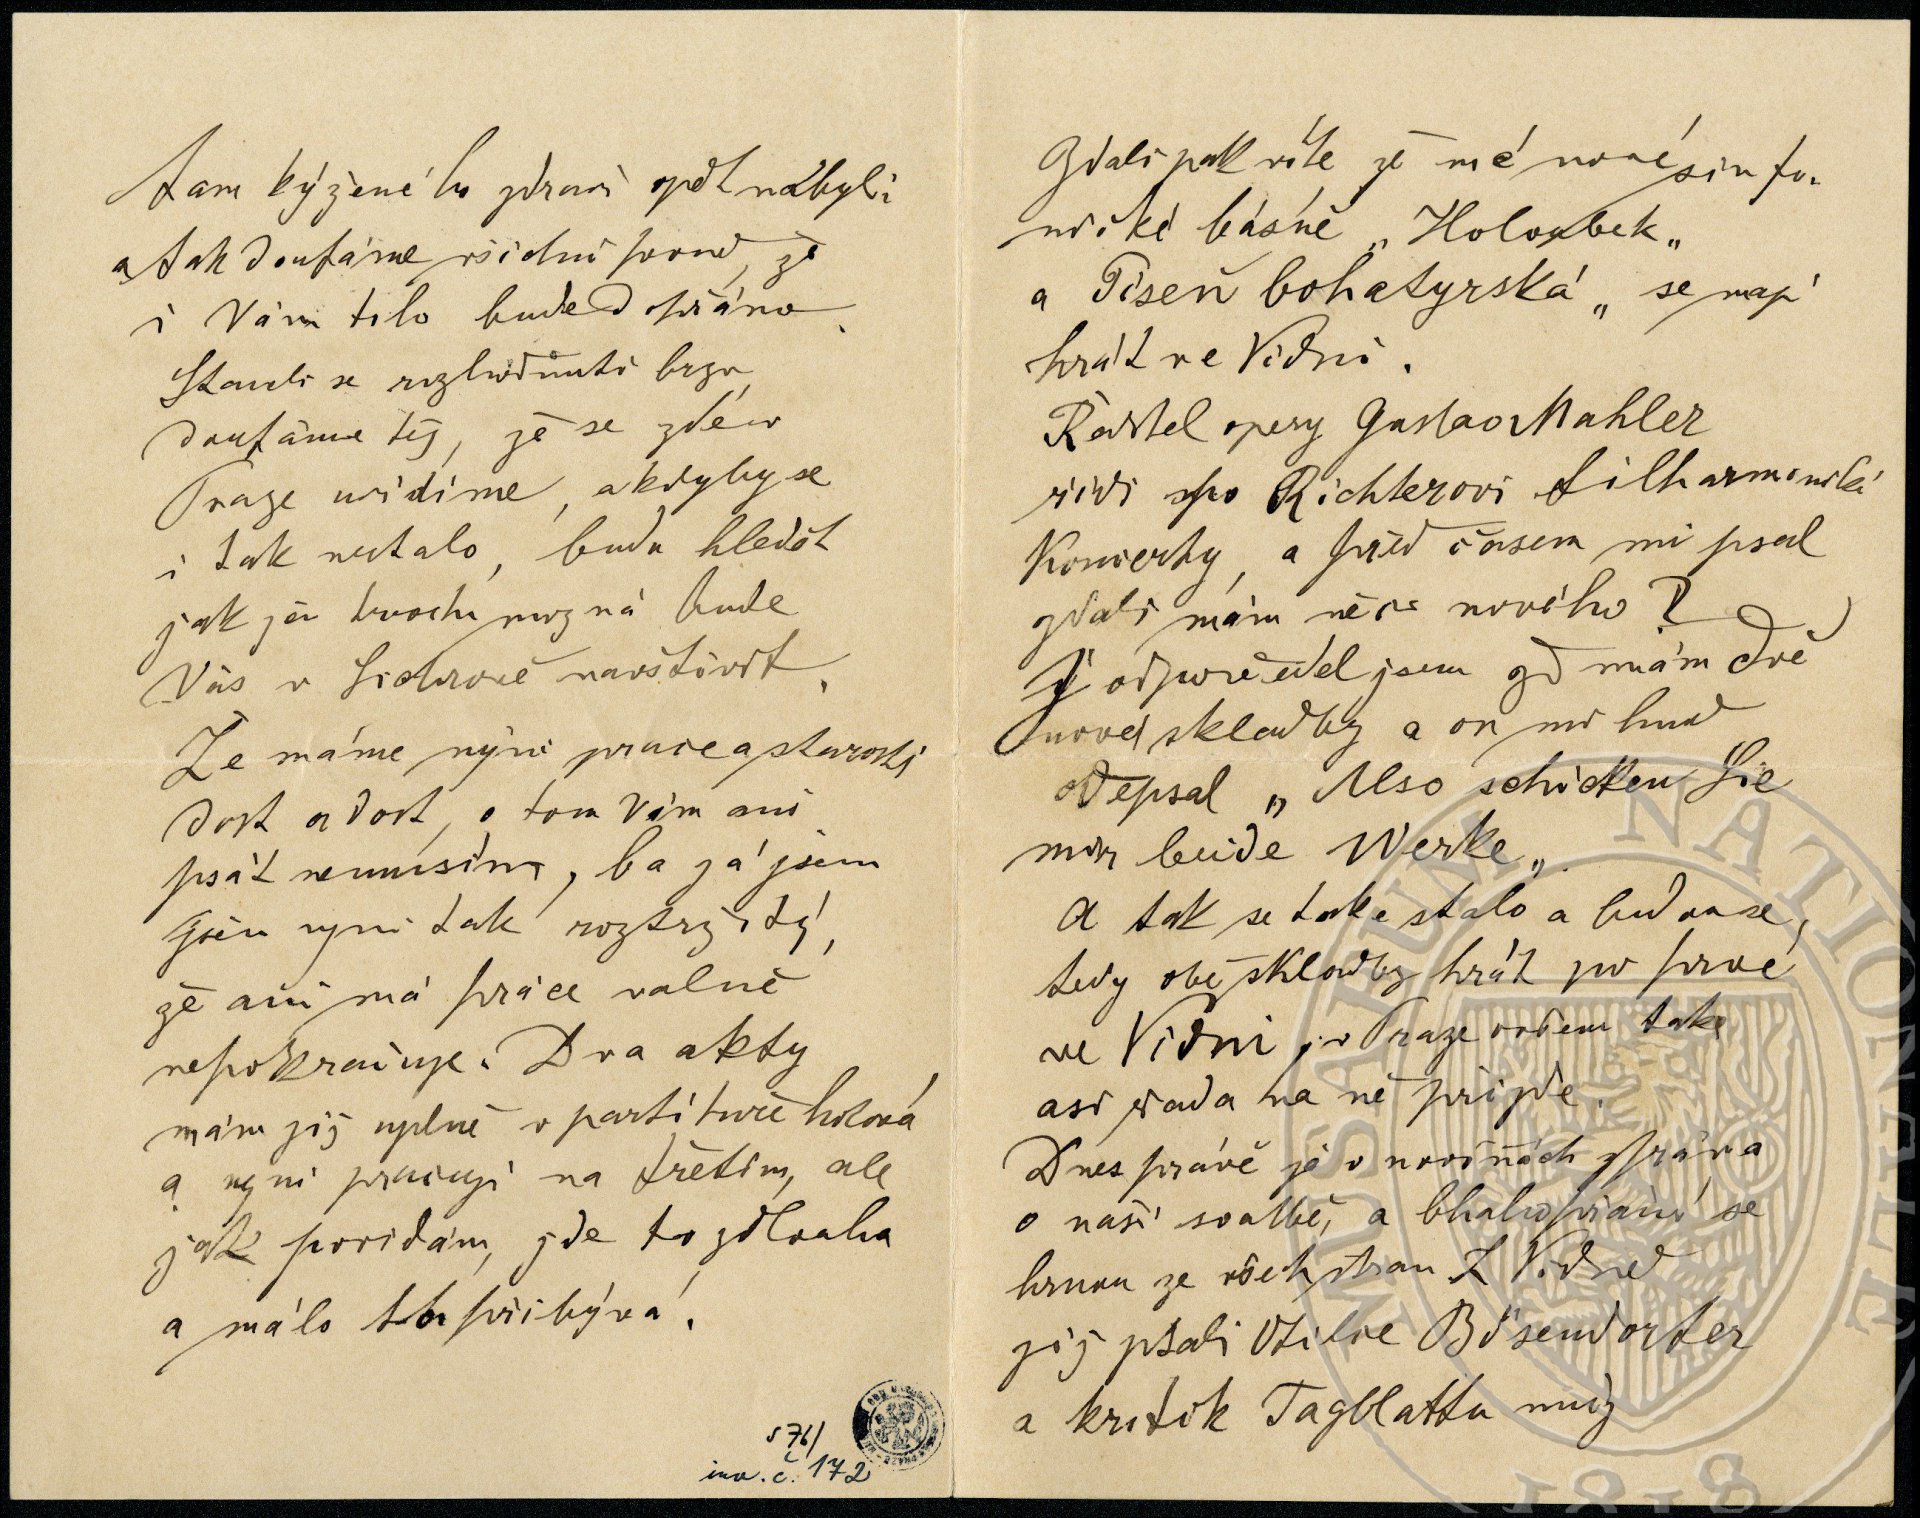 tam kýženého zdraví opět nabyli
a tak doufáme všichni pevně, že
i Vám toho bude dopřáno.
Stanli se rozhodnutí brzo,
doufáme též, že se zde v
Praze uvidíme, a kdyby se
i tak nestalo, budu hledět
jak jen trochu možná bude
Vás v Sichrově navštívit.
Že máme nyní práce a starosti
dost a dost, o tom Vám ani
psát nemusím, ba já jsem
jsem nyni tak roztržitý,
že ani má práce valně
nepokračuje. Dva akty
mám již uplně v partituře hotová
a nyni pracuji na třetím, ale
jak povidám, jde to zdlouha
a málo toho přibývá.
s 76/
inv. č. 172
Zdali pak víte že mé nové sinfo-
nické básně „Holoubek„
a Píseň bohatyrská„ se mají
hrát ve Vídni.
Ředitel opery Gustav Mahler
řidi po Richterovi filharmonické
Koncerty, a před časem mi psal
zdali mám něco nového?
Já odpověděl jsem že mám dvě
nové skladby a on mi hned
odepsal „Also schicken Sie
mir beide Werke„
A tak se také stalo a budou se,
tedy obě skladby hrát po prvé
ve Vídni, v Praze ovšem take
asi řada na ně přijde.
Dnes právě je v novinách zpráva
o naší svatbě, a blahopřání se
hrnou ze všech stran Z Vídně
již psali Otilce Bösendorfer
a kritik Tagblattu můj
MUSAEUM NATIONALE
1818